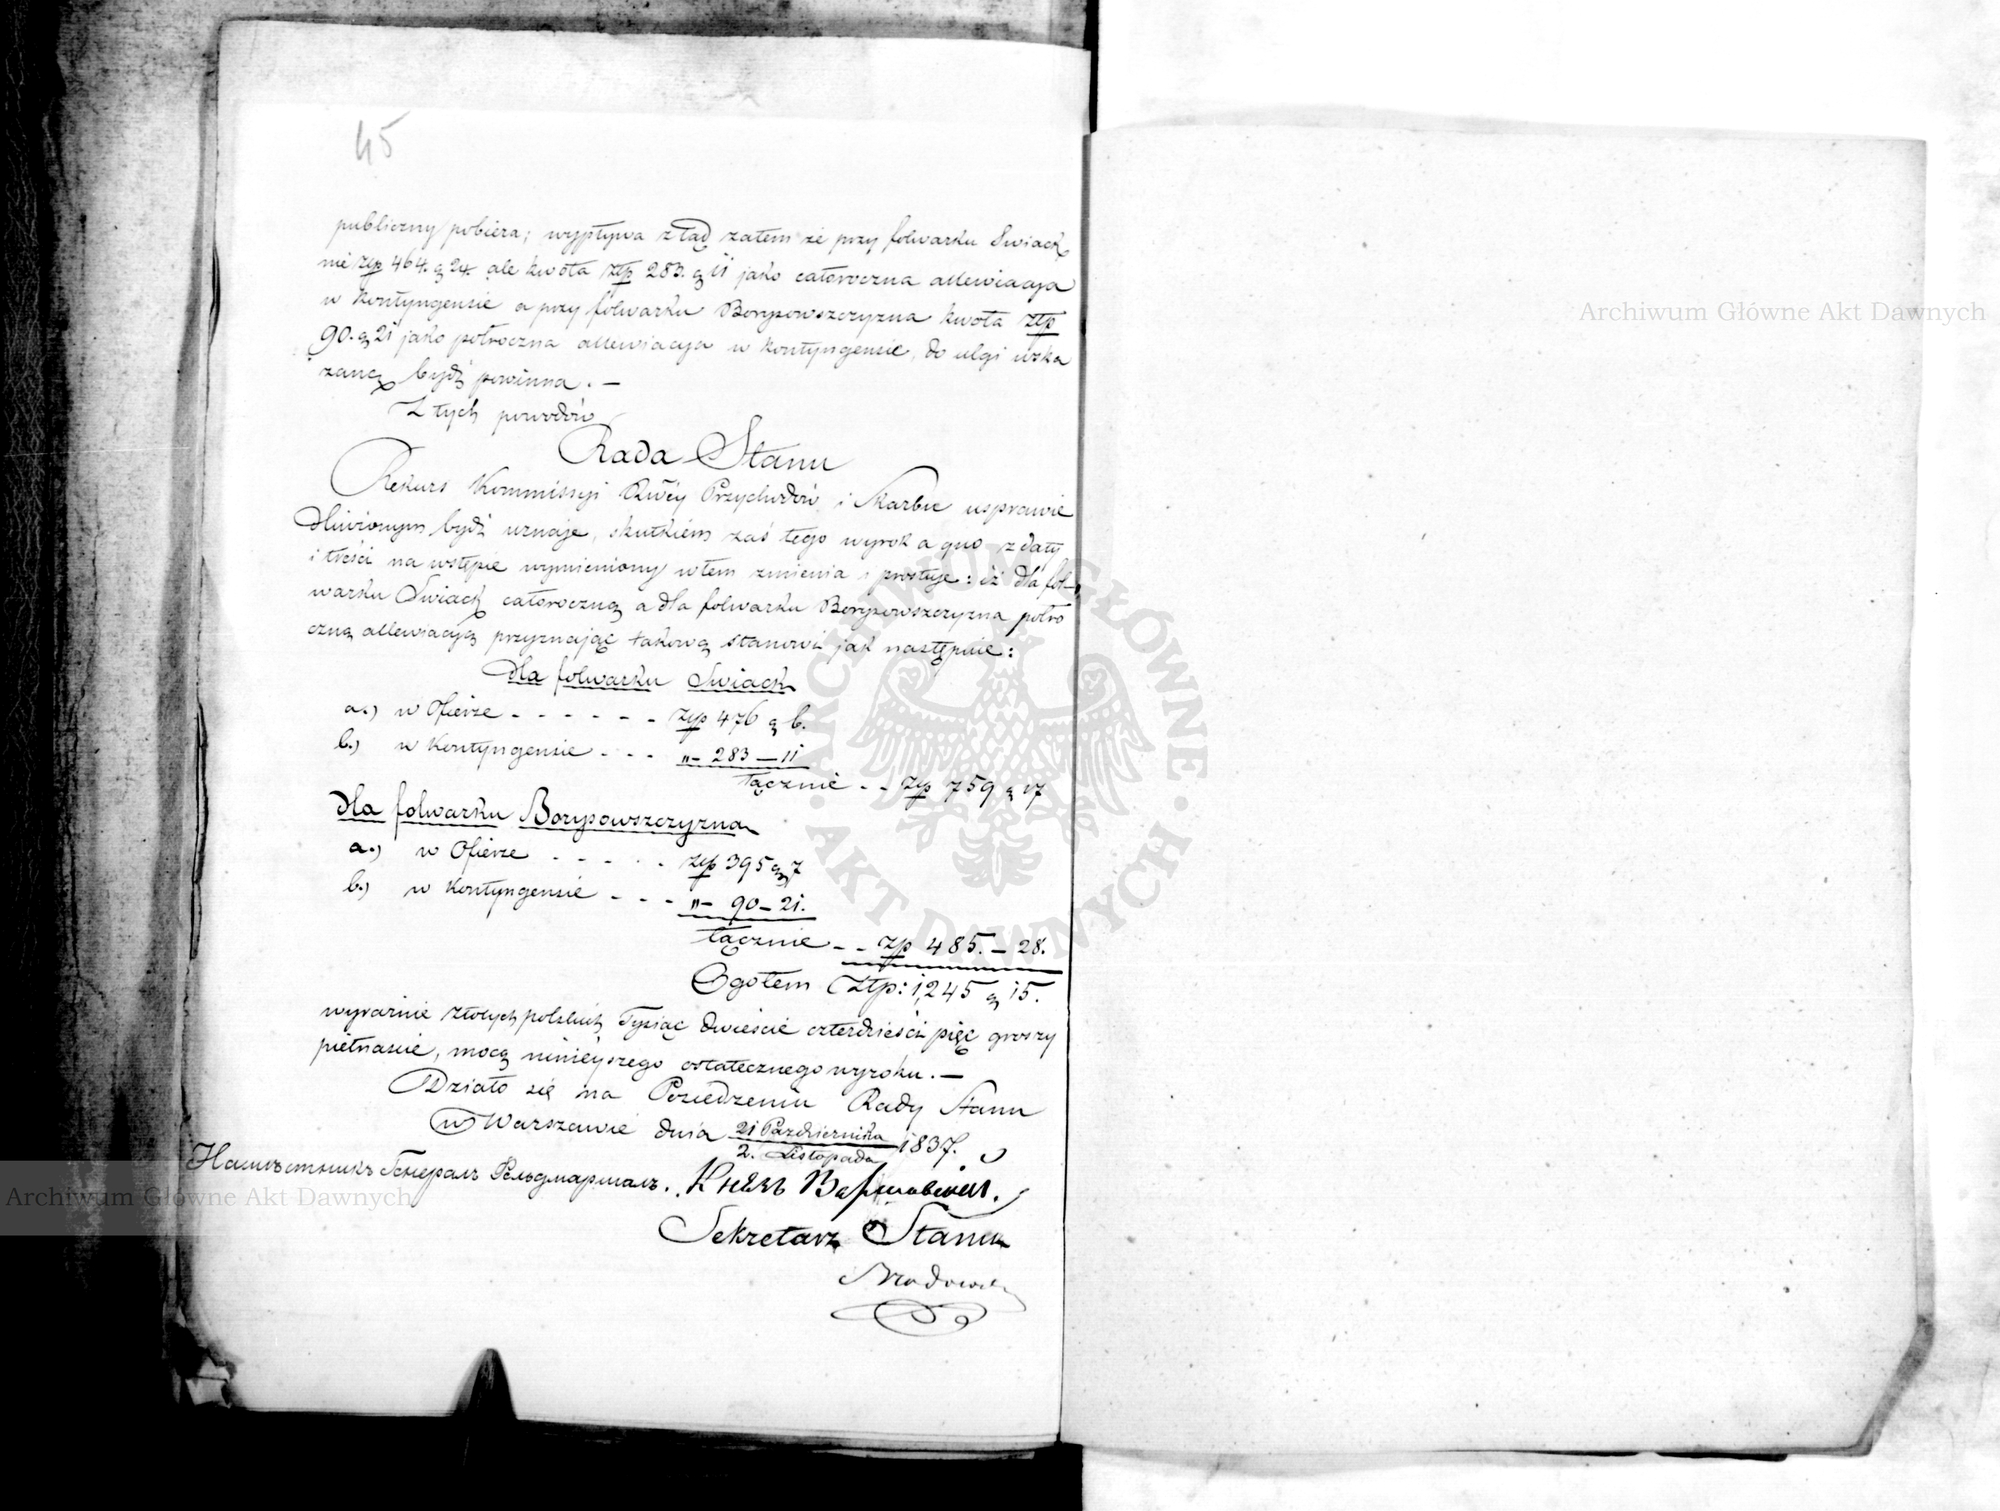 45
publiczny pobiera; wypływa ztąd zatem że przy folwarku Swiack
nie złp 464. g 24. ale kwota złp 283. g 11 jako całoroczna allewiacya
w kontyngensie a przy folwarku Borysowszczyzna kwota złp
90. g 21 jako półroczna allewiacya w kontyngensie, do ulgi wska
zaną bydź powinna. —
Z tych powodów
Rada Stanu
Rekurs Kommissyi Rwéy Przychodów i Skarbu usprawie
dliwionym bydź uznaje, skutkiem zaś tego wyrok a quo z daty
i treści na wstępie wymieniony w tem zmienia i prostuje: iż dla fol-
warku Swiack całoroczną a dla folwarku Borysowszczyzna półro
czną allewiacyą przyznając takową stanowi jak następuie:
dla folwarku Swiack
a.) w Ofierze - - - - - - złp 476 g 6.
b.) w Kontyngensie - - - „— 283 — 11
łącznie - - złp 759 g 17
dla folwarku Borysowszczyzna
a.) w Ofierze - - - - - złp 395 g 7
b.) w Kontyngensie - - - „— 90 — 21.
łącznie - - złp 485. — 28.
Ogołem Złp: 1,245 g 15.
wyraźnie złotych polskich Tysiąc dwieście czterdzieści pięć groszy
piętnaście, mocą ninieyszego ostatecznego wyroku. —
Działo się na Posiedzeniu Rady Stanu
w Warszawie dnia 21 Października / 2. Listopada 1837.
Намѣстникъ Генералъ Фельдмаршалъ. Князь Варшавскій.
Sekretarz Stanu
Archiwum Główne Akt Dawnych
Archiwum Główne Akt Dawnych
ARCHIWUM GŁÓWNE · AKT DAWNYCH ·